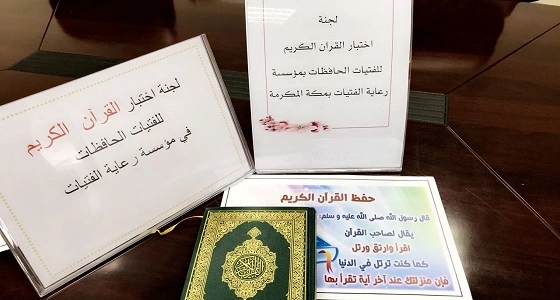 لجنة
اختبار القران الكريم
للفتيات الحافظات بمؤسسة
رعاية الفتيات بمكة المكرمة
لجنة اختبار القرآن الكريم
للفتيات الحافظات
في مؤسسة رعاية الفتيات
حفظ القرآن الكريم
قال رسول الله صلى الله عليه و سلم:
يقال لصاحب القرآن
اقرأ وارتق ورتل
كما كنت ترتل في الدنيا
فإن منزلتك عند آخر آية تقرأ بها